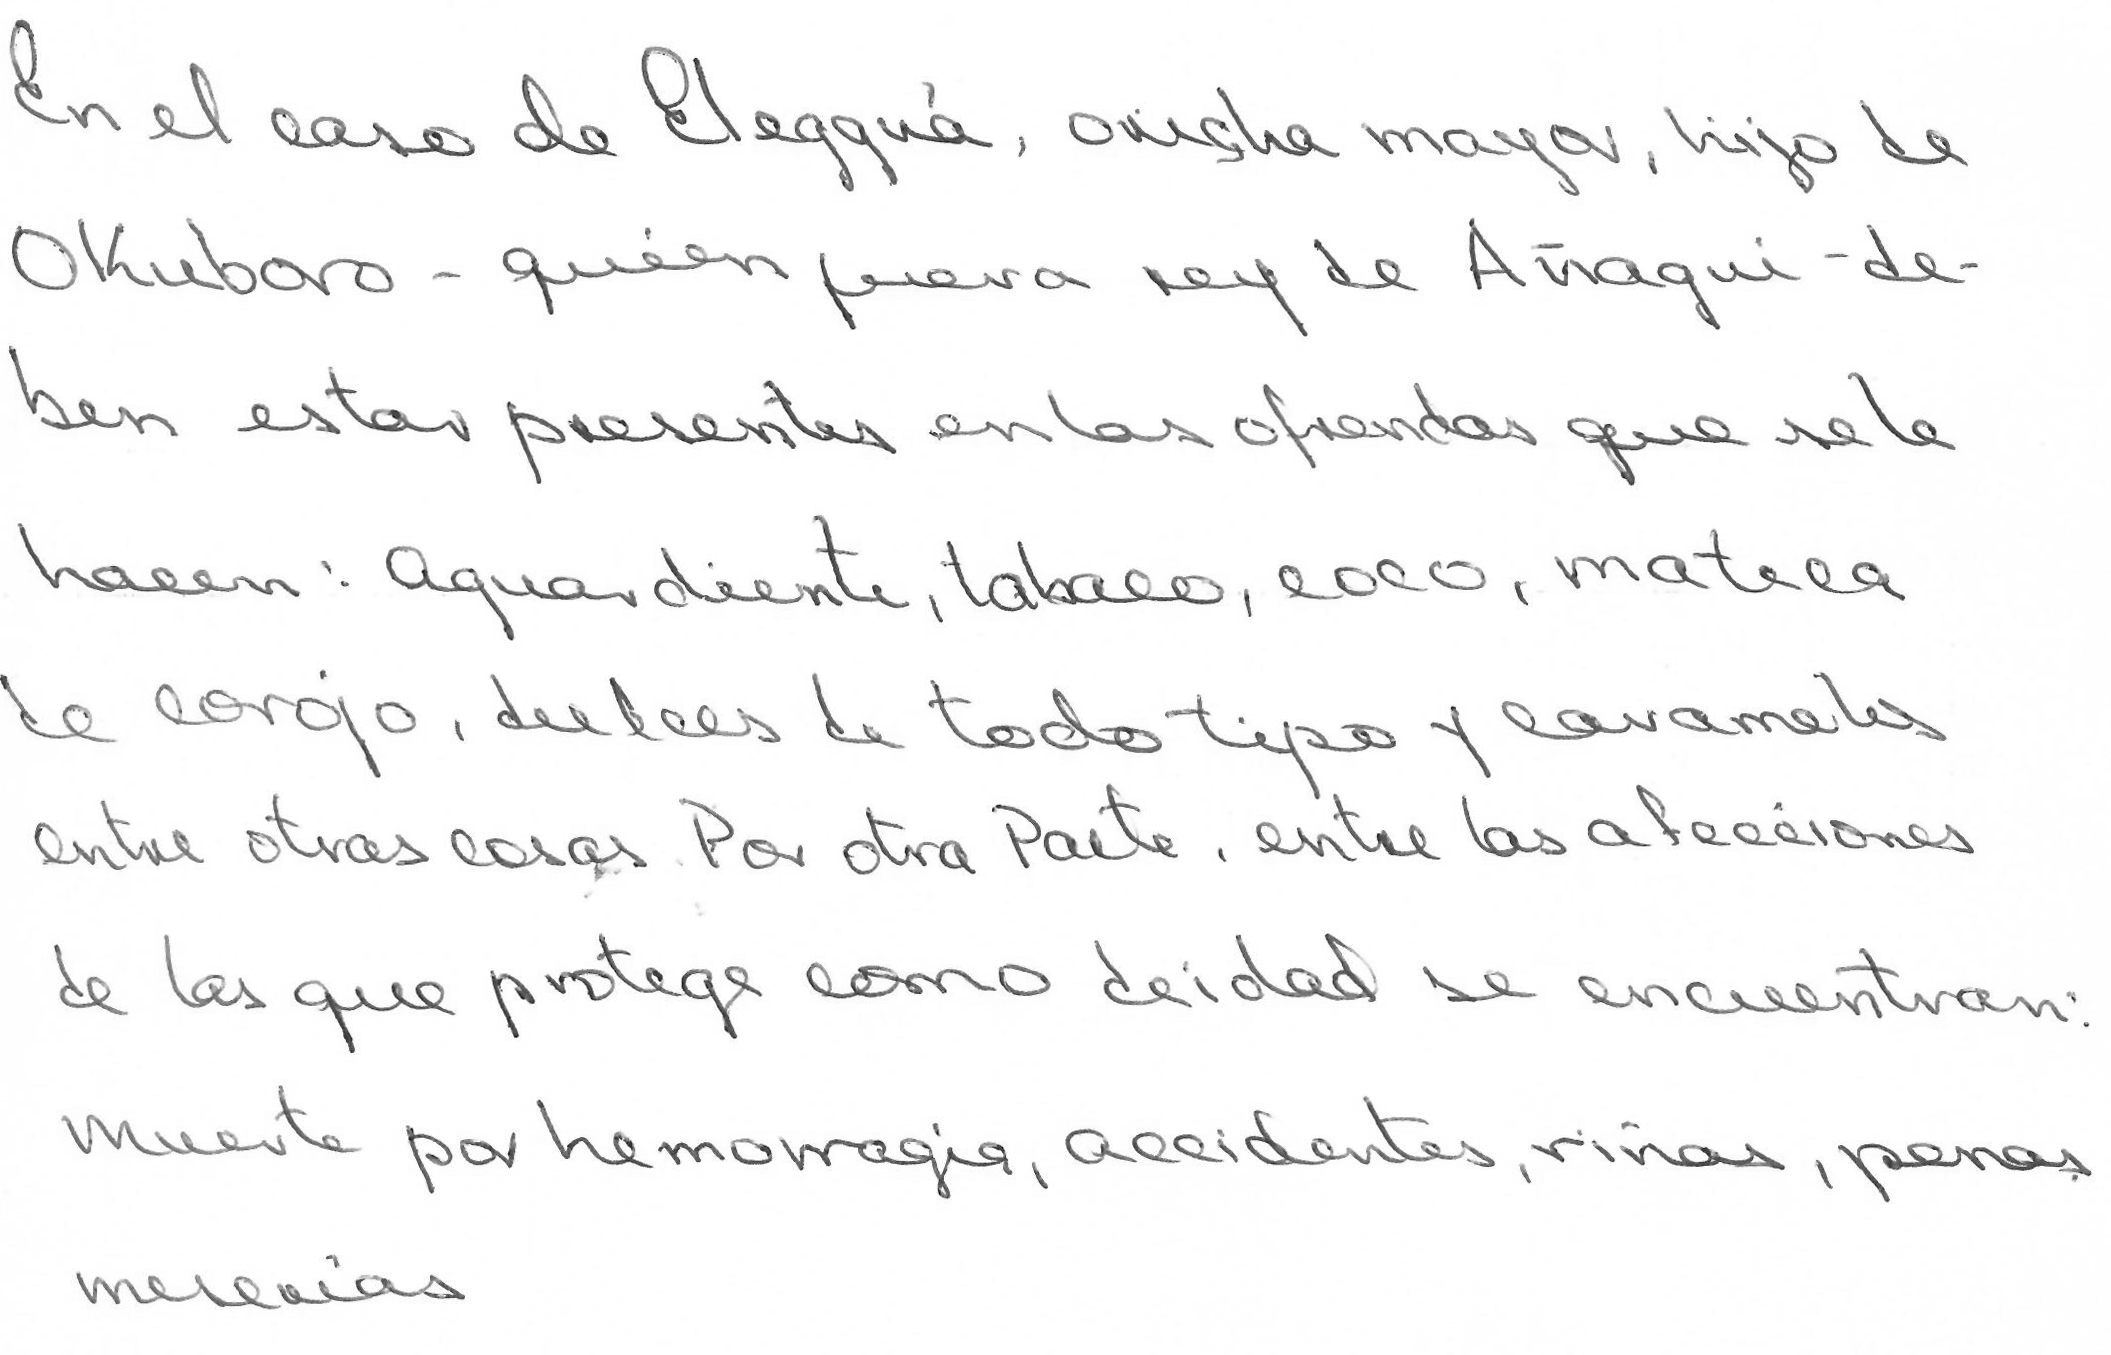 En el caso de Eleggúa, orischa mayor, hijo de
Okuboro - quién fuera rey de Añagui - de-
ben estar presentes en las ofrendas que se le
hacen: aguardiente, tabaco, coco, mateca
de corojo, dulces de todo tipo y caramelos
entre otras cosas. Por otra Parte, entre las afecciones
de las que protege como deidad se encuentran:
muerte por hemorragia, accidentes, riñas, penas,